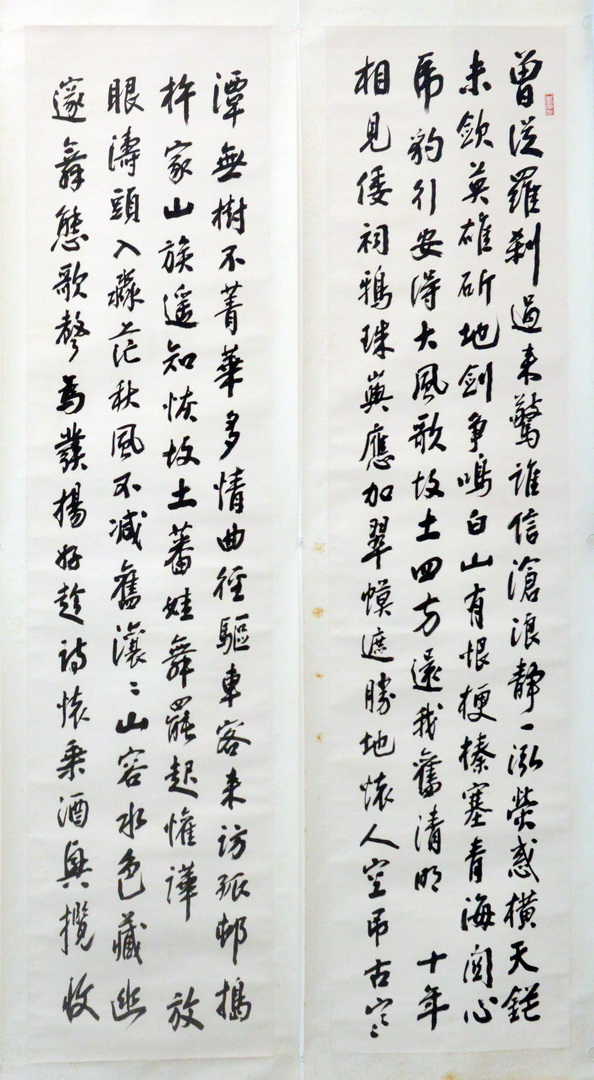 曾從羅剎過來驚誰信滄浪靜一泓熒惑橫天鋩
未斂英雄斫地劍爭鳴白山有恨梗榛塞青海關心
虎豹行安得大風歌故土四方還我舊清明 十年
相見倭祠鴉珠應加翠幙遮勝地懷人空弔古
潭無樹不菁華多情曲徑驅車客來訪孤邨搗
杵家山族遥知恢故土蕃娃舞罷起懽譁 放
眼濤頭入淼茫秋風不减舊瀼〻山容水色藏幽
邃舞態歌聲為發揚好趁詩懷乘酒興攬收